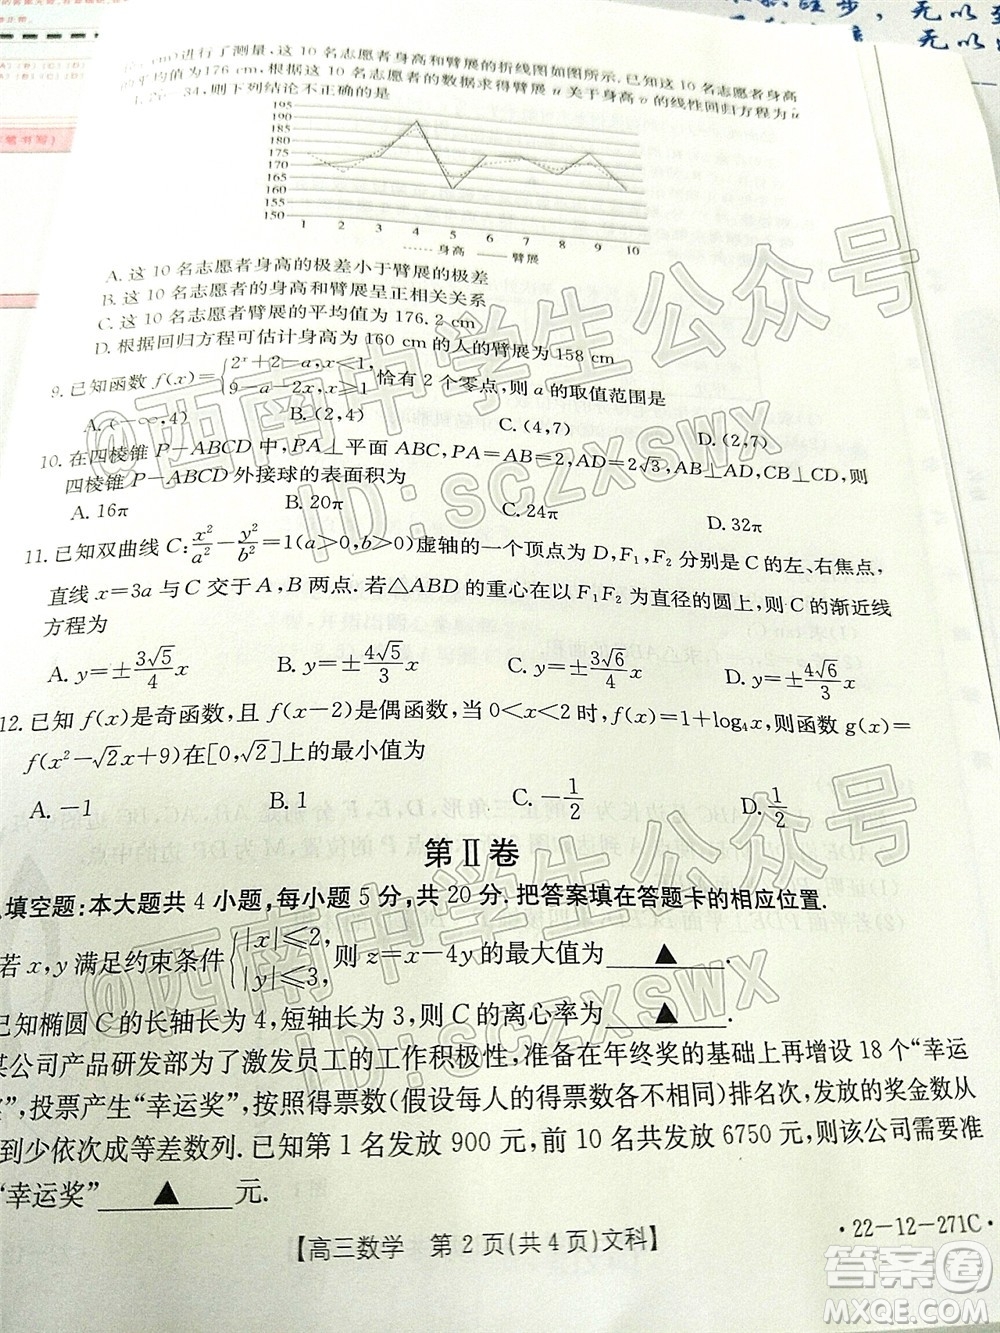 cm)进行了测量,这10名志愿者身高和臂展的折线图如图所示.已知这10名志愿者身高
的平均值为176 cm,根据这10名志愿者的数据求得臂展u关于身高v的线性回归方程为u
34,则下列结论不正确的是
195
190
185
180
175
170
165
160
155
150
1 2 3 4 5 6 7 8 9 10
身高 臂展
A.这10名志愿者身高的极差小于臂展的极差
B.这10名志愿者的身高和臂展呈正相关关系
C.这10名志愿者臂展的平均值为176.2 cm
D.根据回归方程可估计身高为160 cm的人的臂展为158 cm
9.已知函数f(x)={2ˣ+2-a,x<1, 9-a-2x,x≥1 恰有2个零点,则a的取值范围是
A.(-∞,4) B.(2,4) C.(4,7) D.(2,7)
10.在四棱锥P-ABCD中,PA⊥平面ABCD,PA=AB=2,BD=2√3,AB⊥AD,CB⊥CD,则
四棱锥P-ABCD外接球的表面积为
A.16π B.20π C.24π D.32π
11.已知双曲线C:x²/a²-y²/b²=1(a>0,b>0)虚轴的一个顶点为D,F₁,F₂分别是C的左、右焦点,
直线x=3a与C交于A,B两点.若△ABD的重心在以F₁F₂为直径的圆上,则C的渐近线
方程为
A.y=±3√5/4 x B.y=±4√5/3 x C.y=±3√6/4 x
12.已知f(x)是奇函数,f(x-2)是偶函数,当0<x<2时,f(x)=1+log₄x,则函数g(x)=
f(x²-√2x+9)在[0,√2]上的最小值为
A.-1 B.1 C.-1/2 D.1/2
第Ⅱ卷
填空题:本大题共4小题,每小题5分,共20分.把答案填在答题卡的相应位置.
若x,y满足约束条件{|x|≤2, |y|≤3, 则z=x-4y的最大值为 ▲ .
已知椭圆C的长轴长为4,短轴长为3,则C的离心率为 ▲ .
某公司产品研发部为了激发员工的工作积极性,准备在年终奖的基础上再增设18个“幸运
奖”,投票产生“幸运奖”,按照得票数(假设每人的得票数各不相同)排名次,发放的奖金数从
到少依次成等差数列.已知第1名发放900元,前10名共发放6750元,则该公司需要准
“幸运奖” ▲ 元.
【高三数学 第2页(共4页)文科】
·22-12-271C·
@西南中学生公众号
ID:SCZXSWX
@西南中学生公众号
ID:SCZXSWX
答案圈
MXQE.COM